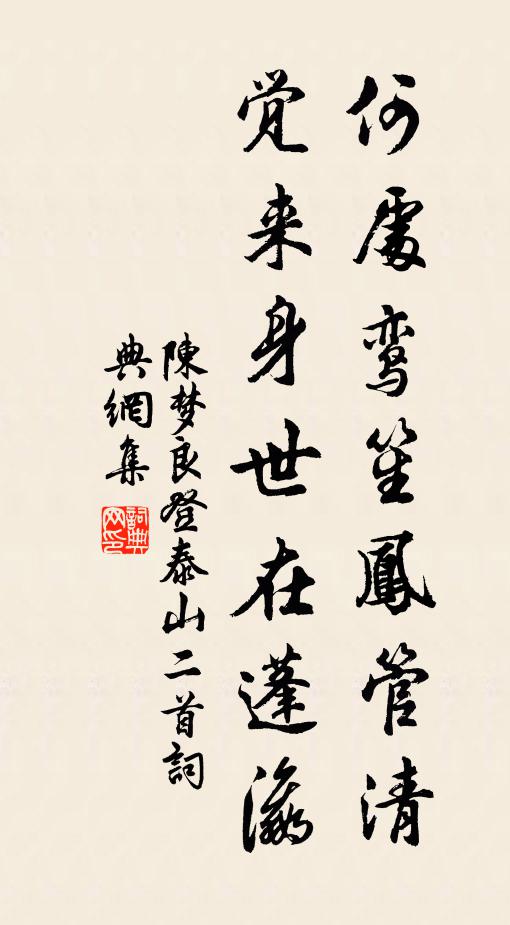 何處鸾笙鳳管清
觉来身世在蓬瀛
陳梦良登泰山二首詞
典網集
詞典
网印